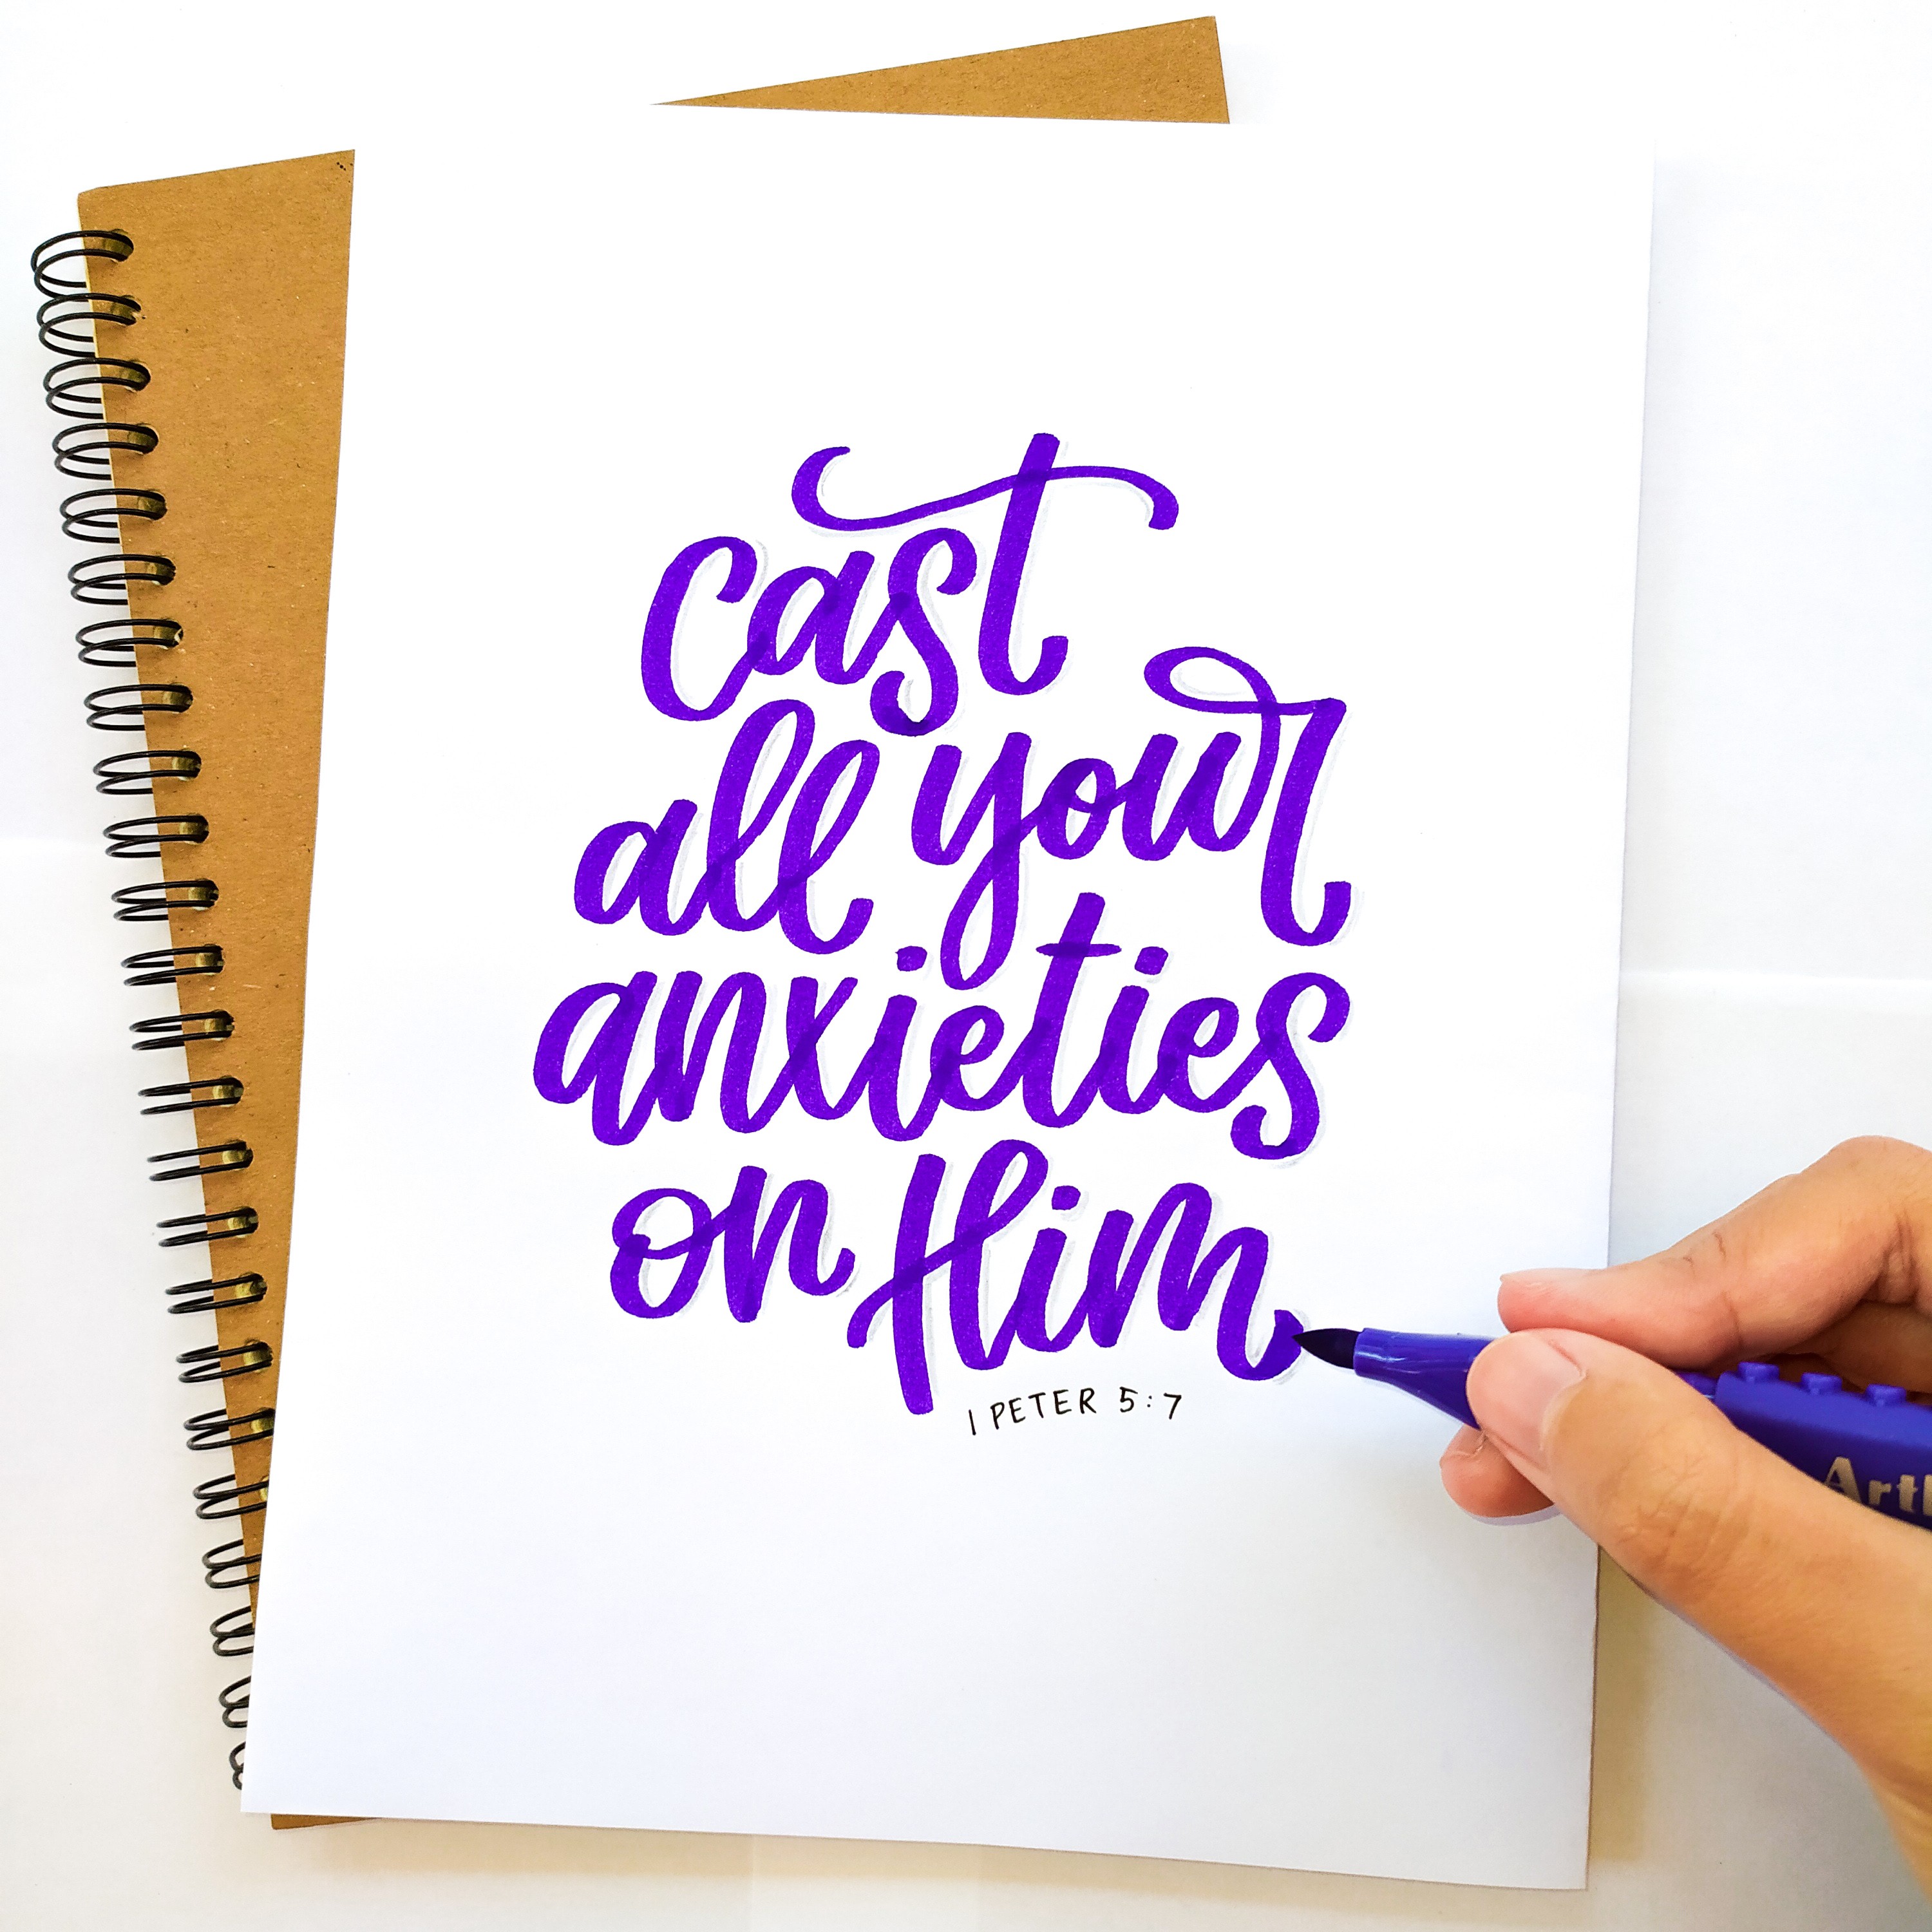 cast
all your
anxieties
on Him
1 PETER 5:7